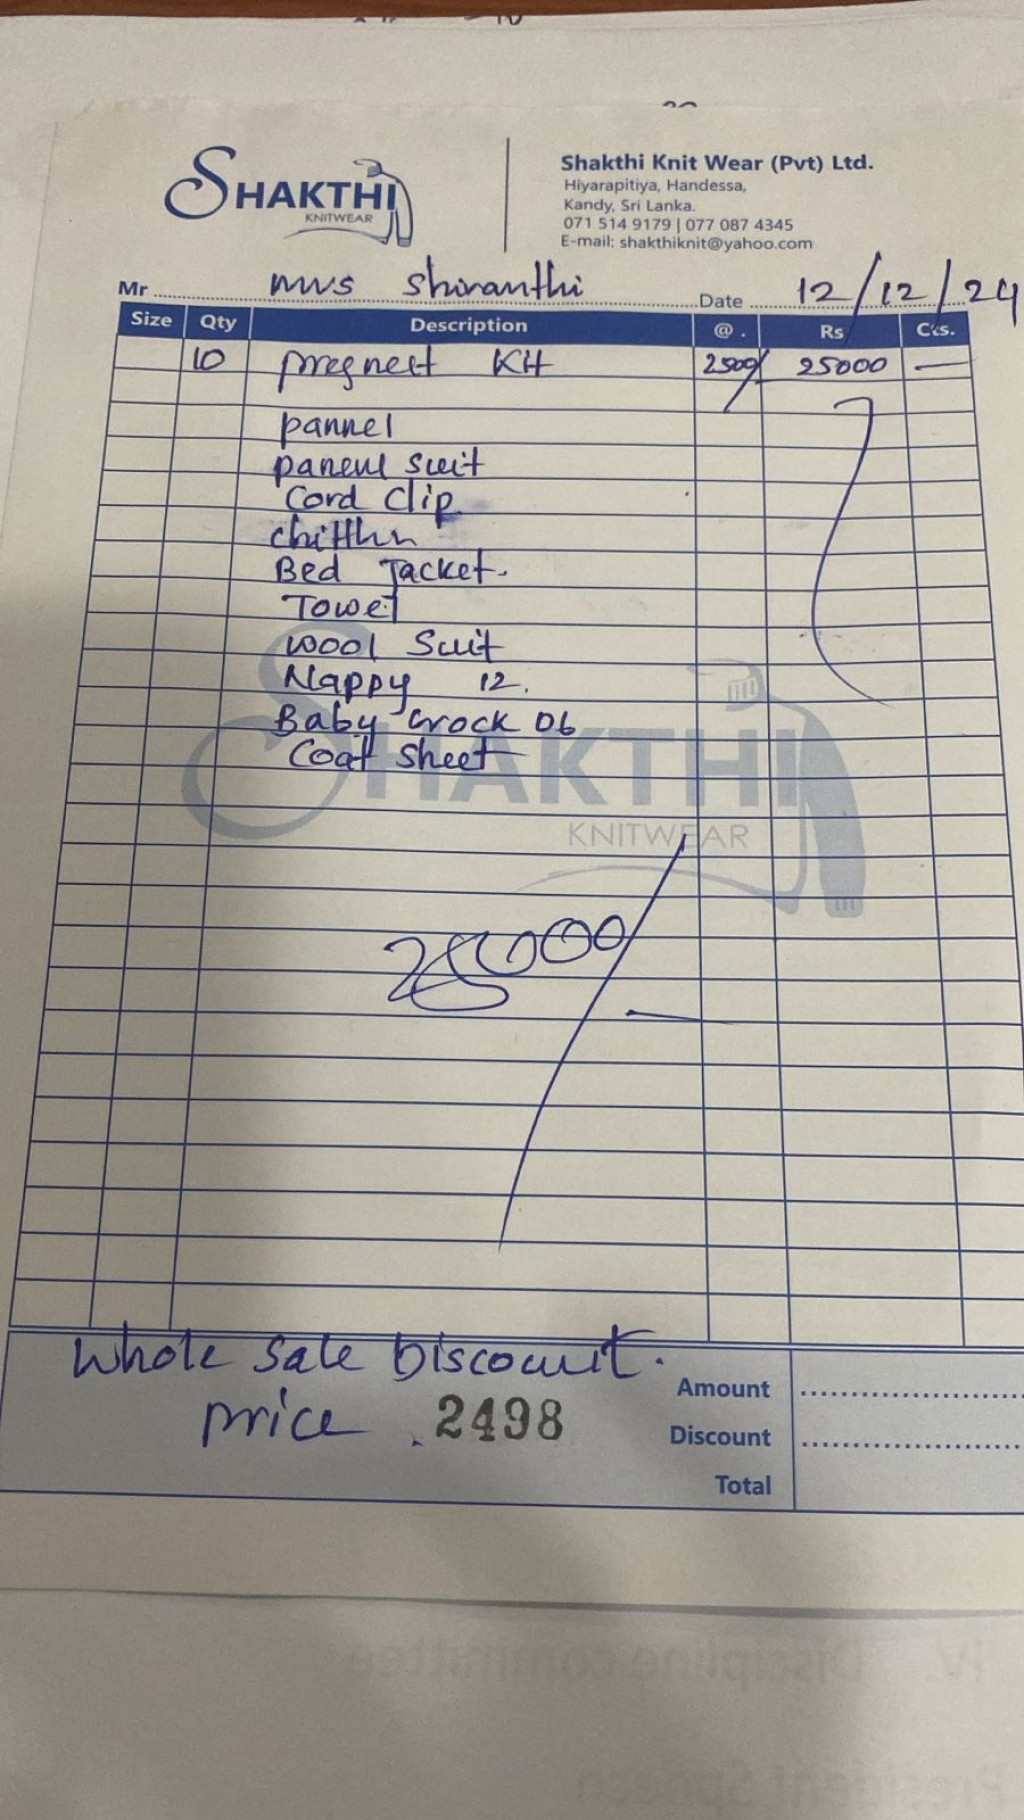 SHAKTHI
KNITWEAR
Shakthi Knit Wear (Pvt) Ltd.
Hiyarapitiya, Handessa,
Kandy, Sri Lanka.
071 514 9179 | 077 087 4345
E-mail: shakthiknit@yahoo.com
Mr mrs Shiranthi Date 12/12/24
Size Qty Description @. Rs Cts.
10 pregnett Kit 2500/ 25000 —
pannel
paneul suit
Cord Clip
Bed Jacket.
Towel
wool Suit
Nappy 12.
Baby crock 06
Coat Sheet
SHAKTHI
KNITWEAR
25000/-
Whole Sale Discount.
price 2498
Amount
Discount
Total
iv. Discipline committee
President Speech